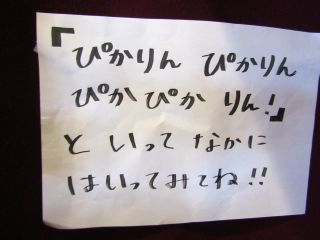 『ぴかりん ぴかりん
ぴかぴか りん!』
と いって なかに
はいってみてね!!